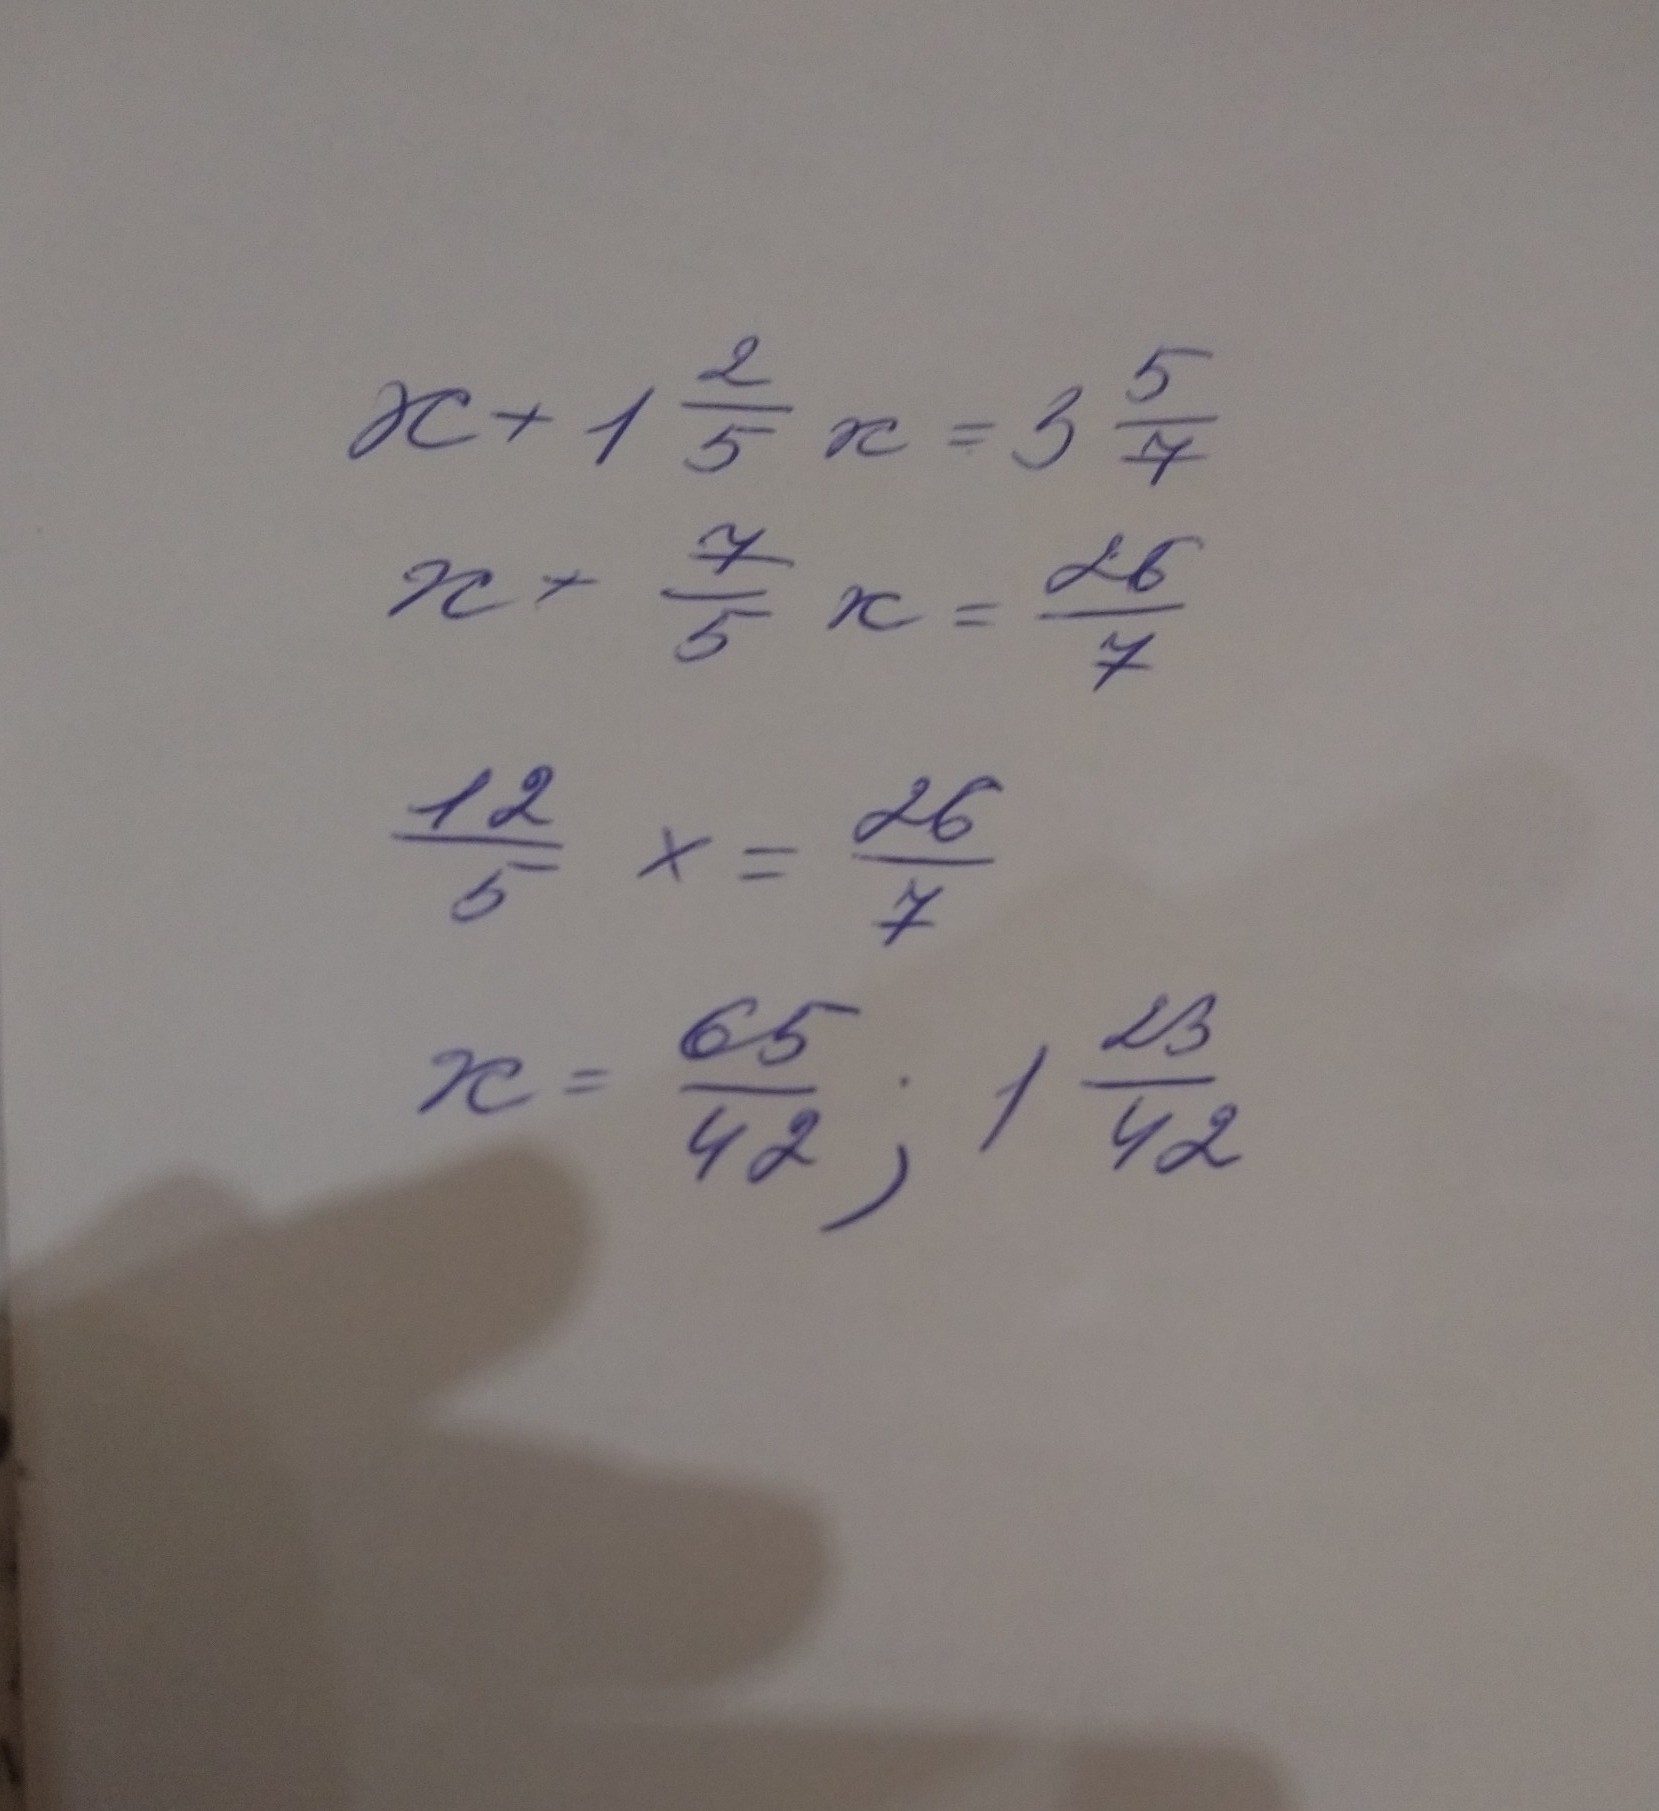 x + 1 2/5 x = 3 5/7
x + 7/5 x = 26/7
12/5 x = 26/7
x = 65/42 ; 1 23/42